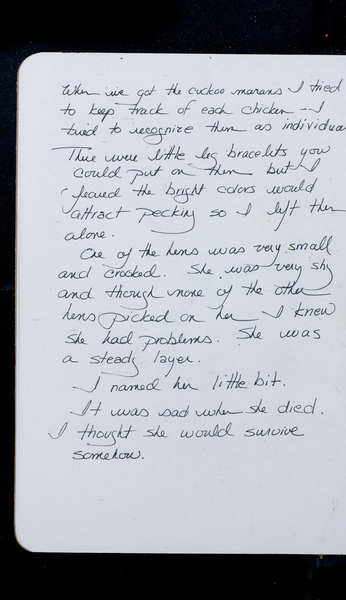 When we got the cuckoo marans I tried
to keep track of each chicken -- I
tried to recognize them as individua
There were little leg bracelets you
could put on them but I
feared the bright colors would
attract pecking so I left them
alone.
One of the hens was very small
and crooked. She was very shy
and though none of the other
hens picked on her I knew
she had problems. She was
a steady layer.
I named her little bit.
It was sad when she died.
I thought she would survive
somehow.